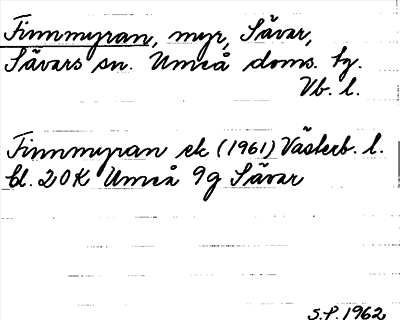 Finnmyran, myr, Sävar,
Sävars sn. Umeå doms. hg.
Vb. l.
Finnmyran ek (1961) Västerb. l.
bl. 20K Umeå 9g Sävar
S.P. 1962